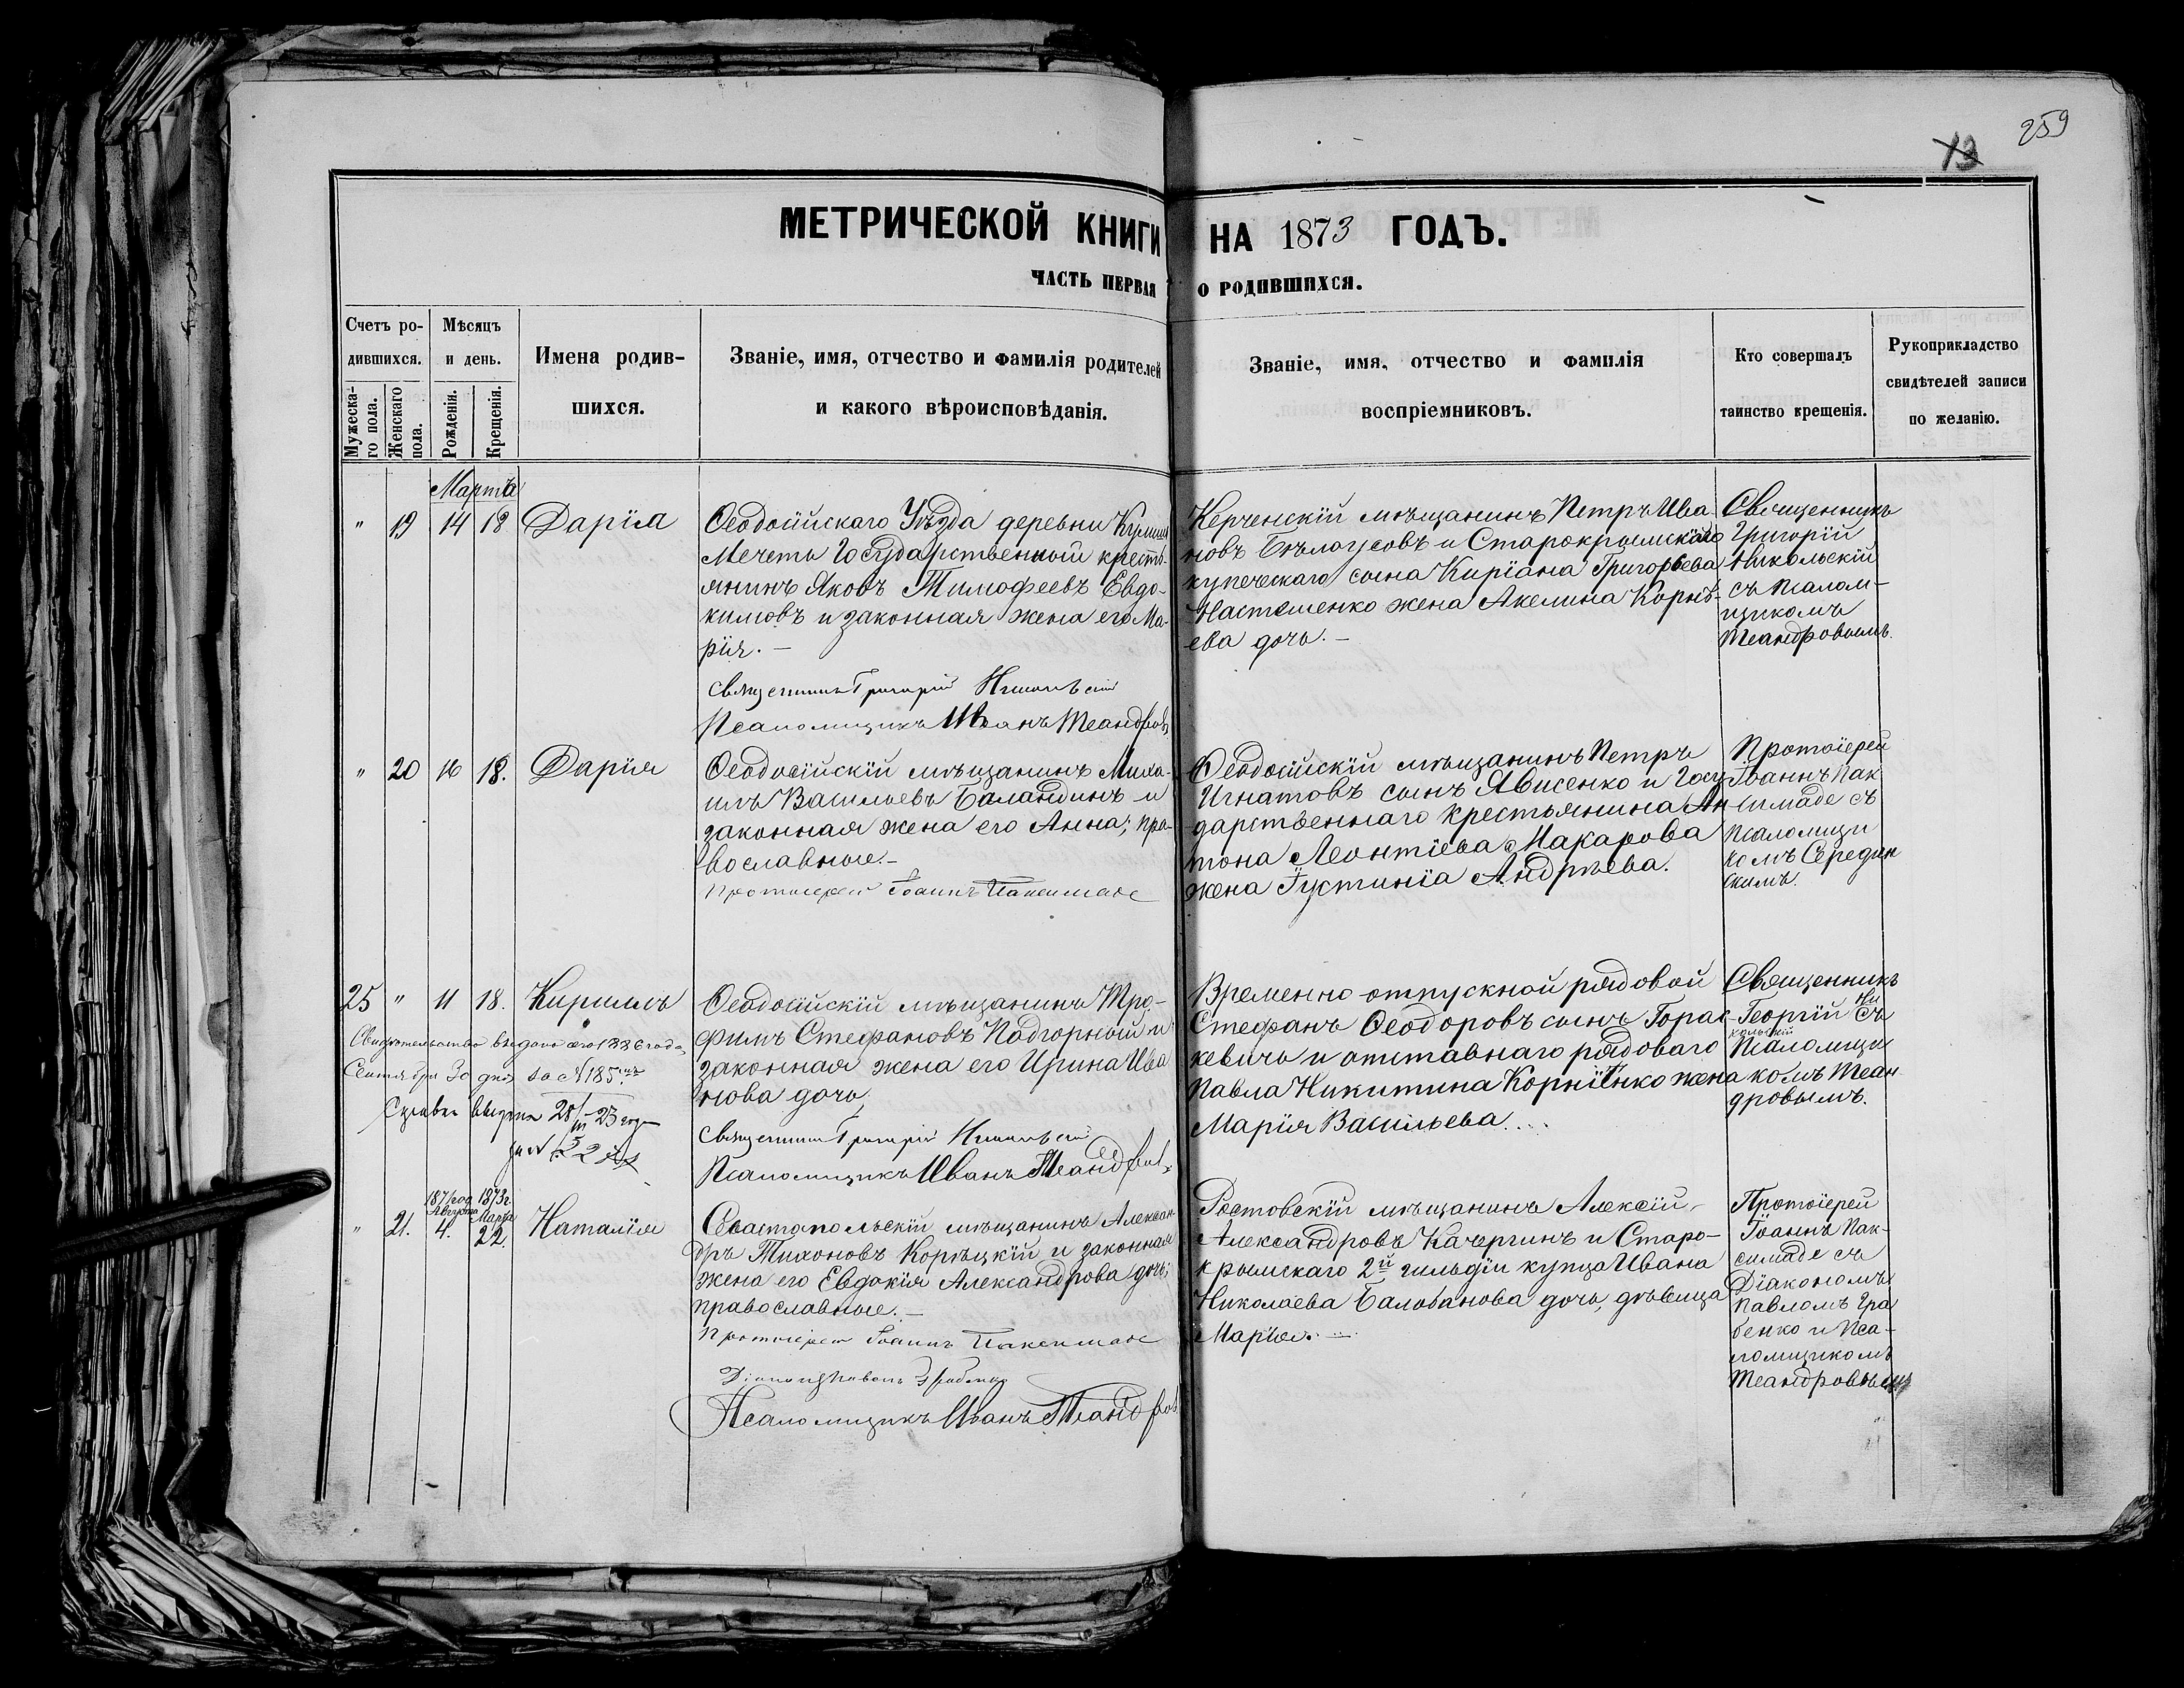 259
13
МЕТРИЧЕСКОЙ КНИГИ НА 1873 ГОДЪ.
ЧАСТЬ ПЕРВАЯ О РОДИВШИХСЯ.
Счетъ ро-
дившихся.
Мужеска-
го пола.
Женскаго
пола.
Мѣсяцъ
и день.
Рожденія.
Крещенія.
Имена родив-
шихся.
Званіе, имя, отчество и фамилія родителей
и какого вѣроисповѣданія.
Званіе, имя, отчество и фамилія
воспріемниковъ.
Кто совершалъ
таинство крещенія.
Рукоприкладство
свидѣтелей записи
по желанію.
Марта
" 19 14 18 Дарія
Ѳеодосійскаго Уѣзда деревни
Мечеть Государственный кресть-
янинъ Яковъ Тимофеевъ Евдо-
кимовъ и законная жена его Ма-
рія. —
Священникъ Григорій Никольскій
Псаломщикъ Иванъ Теандровъ
Керченскій мѣщанинъ Петръ Ива-
новъ Бѣлоусовъ и Старокрымскаго
купеческаго сына Киріана Григорьева
жена Акелина Корнѣ-
ева дочь. —
Священникъ
Григорій
Никольскій
съ Псалом-
щикомъ
Теандровымъ.
" 20 16 18. Дарія
Ѳеодосійскій мѣщанинъ Миха-
илъ Васильевъ Баландинъ и
законная жена его Анна; пра-
вославные. —
Протоіерей Іоаннъ Паксимаде
Ѳеодосійскій мѣщанинъ Петръ
Игнатовъ сынъ Явисенко и Госу-
дарственнаго крестьянина Ан-
тона Леонтіева Макарова
жена Іустинія Андрѣева.
Протоіерей
Іоаннъ Пак
симаде съ
Псаломщи
комъ Середин
скимъ.
25 " 11 18. Кириллъ
Свидетельство выдано 1886 года
Сентября 30 дня за №185
Справка выдана 28/III–23 года
за №
Ѳеодосійскій мѣщанинъ Тро-
фимъ Стефановъ Подгорный и
законная жена его Ирина Ива
нова дочь
Священникъ Григорій Никольскій
Псаломщикъ Иванъ Теандровъ
Временно-отпускной рядовой
Стефанъ Ѳеодоровъ сынъ Горас-
кевичъ и отставнаго рядоваго
Павла Никитина Корніенко жена
Марія Васильева...
Священникъ
Георгій Ни
кольскій съ
Псаломщи
комъ Теан
дровымъ.
" 21. 1871 год Августа 4. 1873г. Марта 22. Наталія
Севастопольскій мѣщанинъ Алексан-
дръ Тихоновъ Корѣцкій и законная
жена его Евдокія Александрова дочь;
православные. —
Протоіерей Іоаннъ Паксимаде
Діаконъ Павелъ Грабенко
Псаломщикъ Иванъ Теандровъ
Ростовскій мѣщанинъ Алексій
Александровъ Качергинъ и Старо-
крымскаго 2й гильдіи купца Ивана
Николаева Балобанова дочь, дѣвица
Марья. —
Протоіерей
Іоаннъ Пак-
симаде съ
Діакономъ
Павломъ Гра
бенко и Пса-
ломщикомъ
Теандровымъ